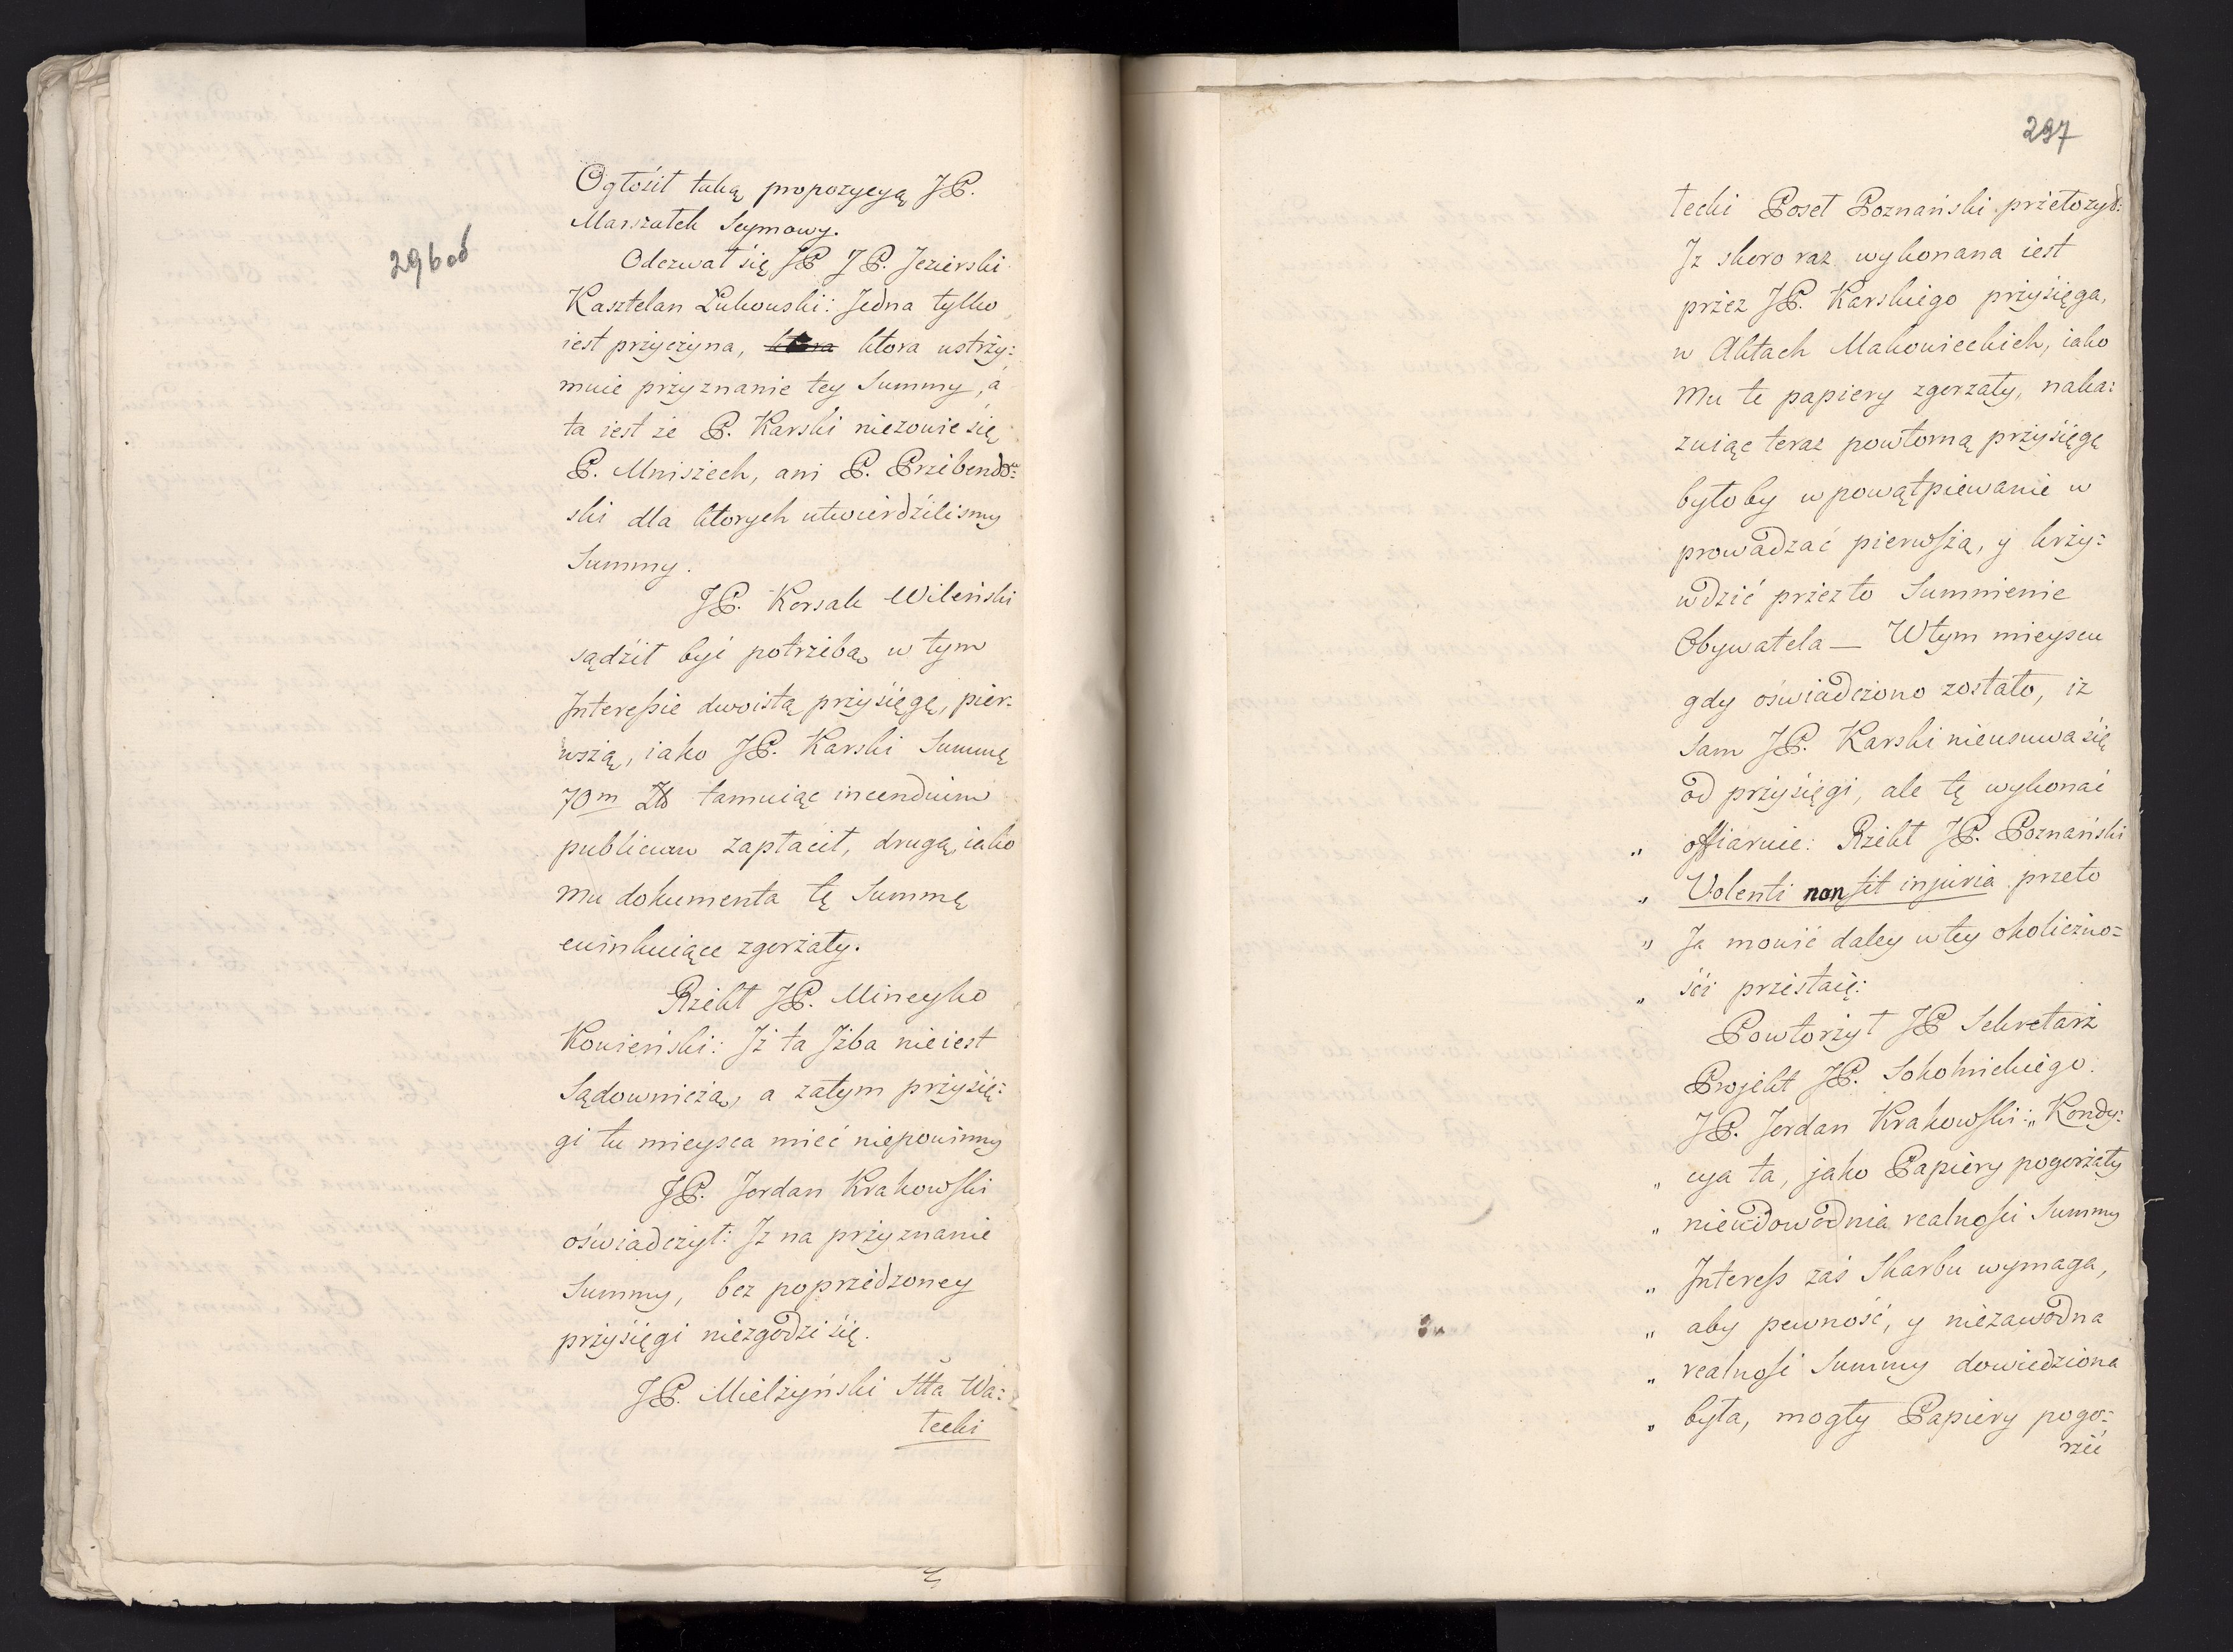 296 od
Ogłosił taką propozycyą JP.
Marszałek Seymowy.
Odezwał się JP JP. Jezierski
Kasztelan Łukowski: Jedna tylko
iest przyczyna, ktora ktora ustrzy:
muie przyznanie tey Summy, a
ta iest że P. Karski niezowie się
P. Mniszech, ani P. Przibendo:
ski dla ktorych utwierdzilismy
Summy.
JP. Korsak Wileński
sądził być potrzebą w tym
Interessie dwoistą przysięgę, pier:
wszą, iako JP. Karski Summę
70m Zł tamuiąc incendium
publicum zapłacił, drugą, iako
mu dokumenta tę Summę
ewinkuiące zgorzały.
Rzekł JP. Mineyko
Kowieński: Iż ta Izba nieiest
Sądowniczą, a zatym przysię:
gi tu mieysca mieć niepowinny
JP. Jordan Krakowski
oświadczył: Iz na przyznanie
Summy, bez poprzedzoney
przysięgi niezgodzi się.
JP. Mielżyński Stta Wa:
łecki
297
łecki Poseł Poznański przełozył:
Iz skoro raz wykonana iest
przez JP. Karskiego przysięga,
w Aktach Makowieckich, iako
mu te papiery zgorzały, naka:
zuiąc teraz powtorną przysięgę
byłoby w powątpiewanie w
prowadzać pierwszą, y krzy:
wdzić przezto Sumnienie
Obywatela — W tym mieyscu
gdy oświadczono zostało, iz
Sam JP. Karski nieusuwa się
od przysięgi, ale tę wykonać
„ offiaruie: Rzekł JP. Poznański
„ Volenti non fit injuria przeto
„ Ja mowić daley w tey okoliczno=
„ ści przestaię:
Powtorzył JP Sekretarz
Projekt JP. Sokolnickiego.
JP. Jordan Krakowski: „Kondy:
„ cya ta, jako Papiery pogorzały
„ nieudowodnia realności Summy
„ Interess zaś Skarbu wymaga,
„ aby pewność, y niezawodna
„ realność Summy dowiedziona
„ była, mogły Papiery pogo:
rzeć